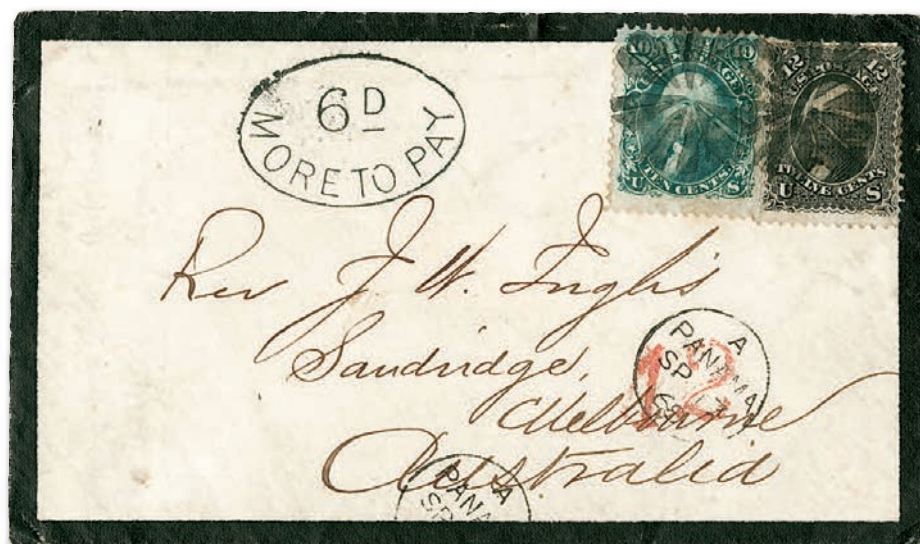 6D
MORE TO PAY
10 10
TEN CENTS
U S
12 12
U.S. POSTAGE
TWELVE CENTS
U S
Rev J. W. Inglis
Sandridge,
Melbourne
Australia
A
PANAMA
SP
68
12
A
PANA
SP